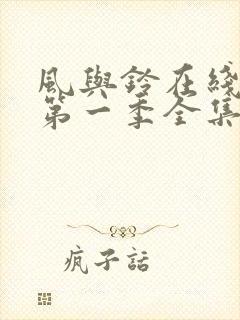 風與鈴在綫
第一季全集
瘋子話